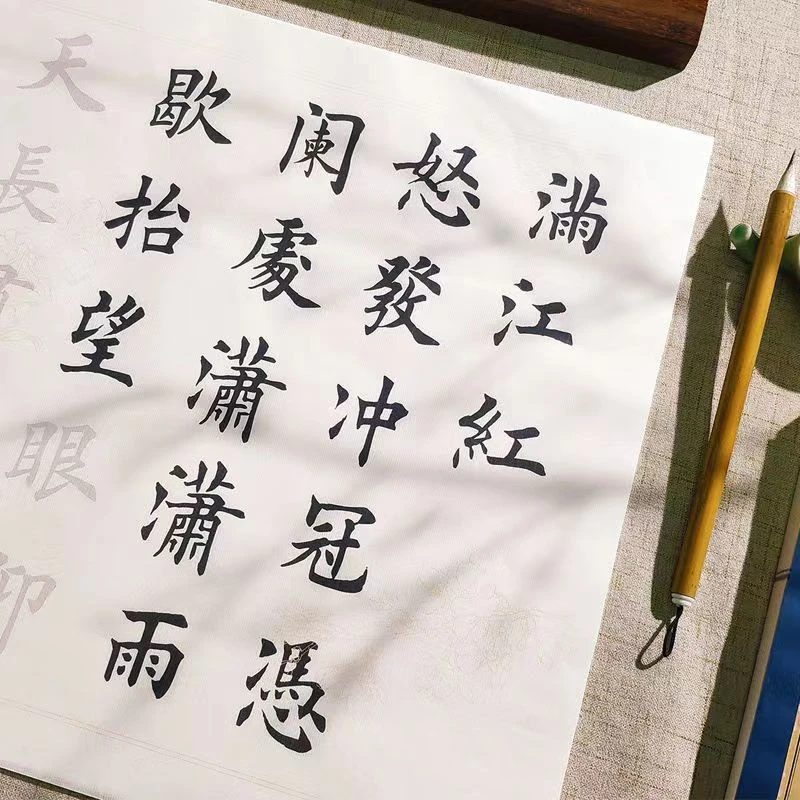 滿江紅
怒發冲冠憑
阑處瀟瀟雨
歇抬望
眼仰
天長